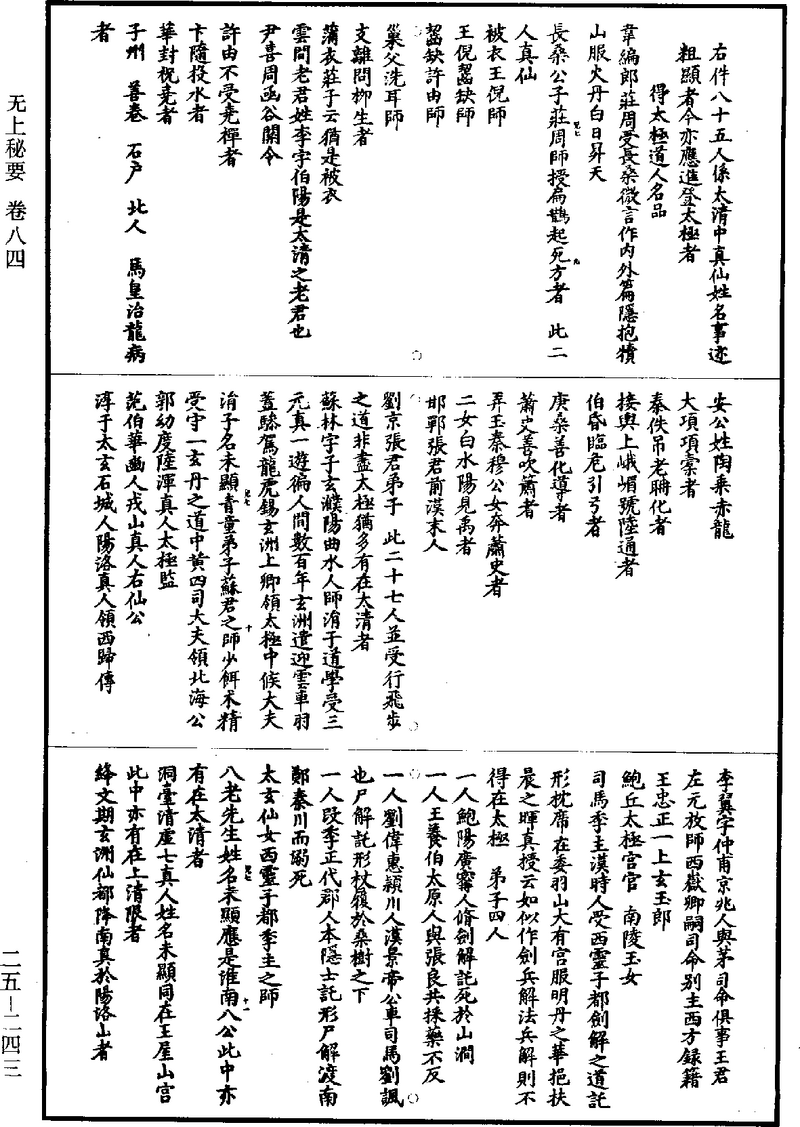 无上秘要 卷八四
右件八十五人係太清中真仙姓名事迹
粗顯者今亦應進登太極者
得太極道人名品
韋編郎莊周受長桑微言作內外篇隱抱犢
山服火丹白日昇天
長桑公子莊周師授扁鵲起死方者 此二
人真仙
被衣王倪師
王倪齧缺師
齧缺許由師
巢父洗耳師
支離問柳生者
蒲衣莊子云猶是被衣
雲問老君姓李字伯陽是太清之老君也
尹喜周函谷關令
許由不受堯禪者
卞隨投水者
華封祝堯者
子州 善卷 石戶 北人 馬皇治龍病
者
安公姓陶乘赤龍
大項項橐者
秦佚弔老聃化者
接輿上峨嵋號陸通者
伯昏臨危引弓者
庚桑善化導者
蕭史善吹簫者
弄玉秦穆公女奔蕭史者
二女白水陽見禹者
邯鄲張君前漢末人
劉京張君弟子 此二十七人並受行飛步
之道非盡太極猶多有在太清者
蘇林字子玄濮陽曲水人師涓子道學受三
元真一遊徧人間數百年玄洲遣迎雲車羽
蓋驂駕龍虎錫玄洲上卿領太極中候大夫
涓子名未顯青童弟子蘇君之師少餌朮精
受守一玄丹之道中黃四司大夫領北海公
郭幼度陸渾真人太極監
范伯華幽人戎山真人右仙公
淳于太玄石城人陽洛真人領西歸傳
李翼字仲甫京兆人與茅司命俱事王君
左元放師西嶽卿嗣司命別主西方錄籍
王忠正一上玄玉郎
鮑丘太極宮官 南陵玉女
司馬季主漢時人受西靈子都劍解之道託
形枕席在委羽山大有宮服明丹之華挹扶
晨之暉真授云如似作劍兵解法兵解則不
得在太極 弟子四人
一人鮑陽廣甯人脩劍解託死於山澗
一人王養伯太原人與張良共採藥不反
一人劉偉惠潁川人漢景帝公車司馬劉諷
也尸解託形杖履於桑樹之下
一人段季正代郡人本隱士託形尸解渡南
鄭秦川而溺死
太玄仙女西靈子都季主之師
八老先生姓名未顯應是淮南八公此中亦
有在太清者
洞臺清虛七真人姓名未顯同在王屋山宮
此中亦有在上清限者
絳文期玄洲仙都降南真於陽洛山者
二五—二四三